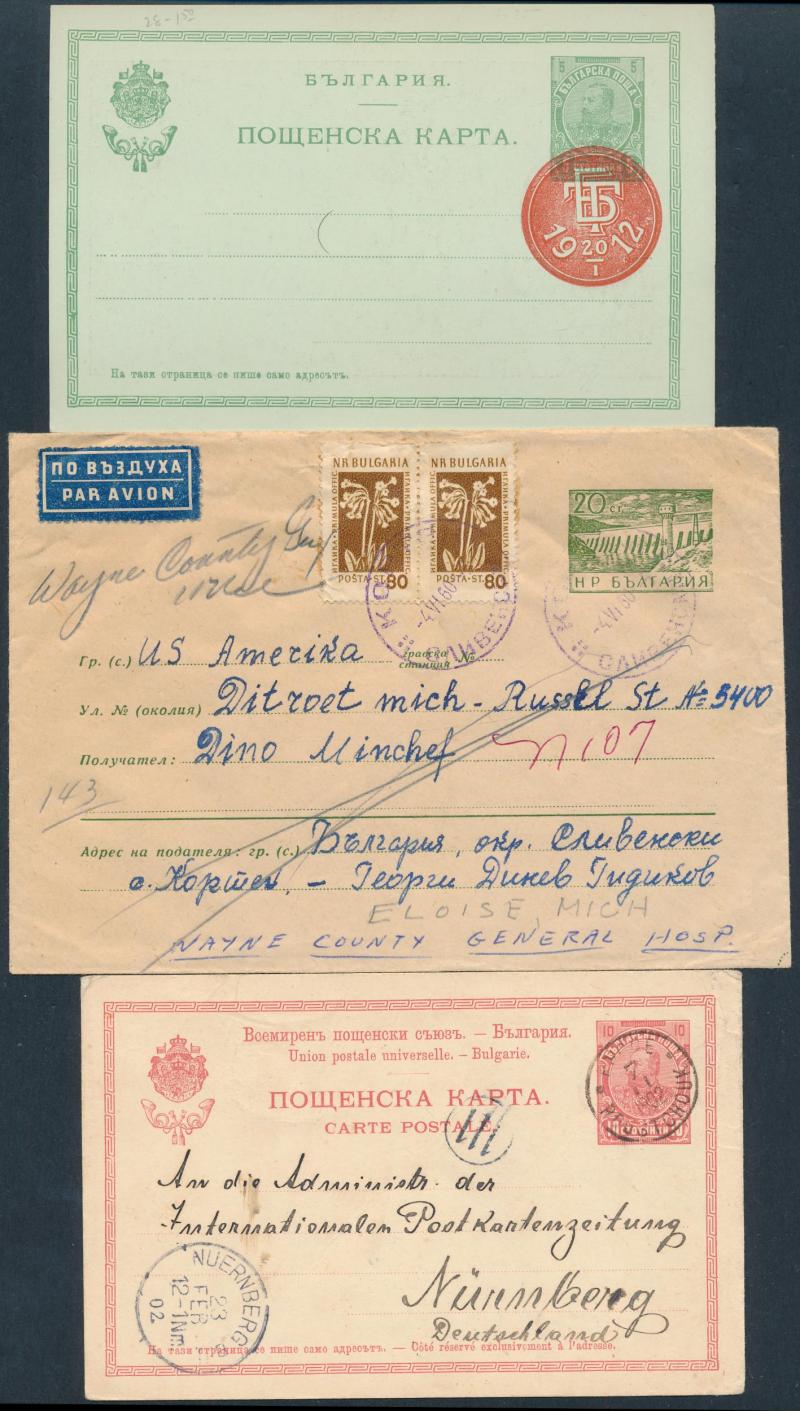 28-150
БЪЛГАРИЯ.
ПОЩЕНСКА КАРТА.
5 5
БЪЛГАРСКА ПОЩА
СТОТИНКИ
ТБ
19 20 12
I
На тази страница се пише само адресътъ.
ПО ВЪЗДУХА
PAR AVION
Wayne County Gen
NR BULGARIA
ИГЛИКА · PRIMULA OFFIC
POŠTA · ST. 80
NR BULGARIA
ИГЛИКА · PRIMULA OFFIC
POŠTA · ST. 80
20 ст.
НР БЪЛГАРИЯ
-4.VI.60
СЛИВЕНСК
-4.VI.60
СЛИВЕНСК
Гр. (с.) US Amerika градска станция №
Ул. № (околия) Ditroet mich - Russel St №: 3400
Получател: Dino Minchef
107
143
Адрес на подателя: гр. (с.) България, окр. Сливенски
с. Кортен, - Георги Динев Гидиков
ELOISE, MICH
WAYNE COUNTY GENERAL HOSP.
Всемиренъ пощенски съюзъ. — България.
Union postale universelle. — Bulgarie.
ПОЩЕНСКА КАРТА.
CARTE POSTALE.
10 10
An die Administr. der
Internationalen Postkartenzeitung
Nürnberg
Deutschland
NUERNBERG
23
FEB
12-1Nm
02
На тази страница се пише само адресътъ. — Côté réservé exclusivement à l'adresse.